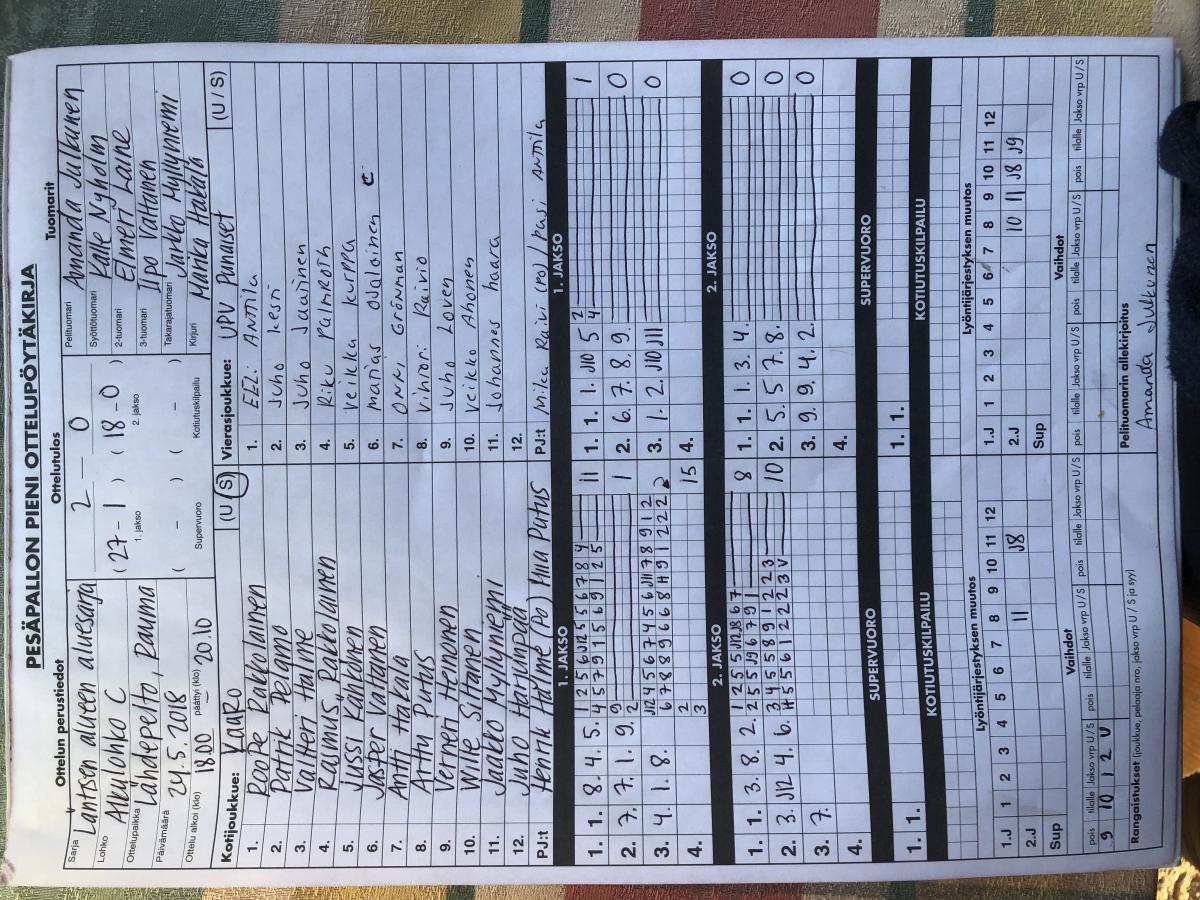 PESÄPALLON PIENI OTTELUPÖYTÄKIRJA
Ottelun perustiedot
Sarja Läntisen alueen aluesarja
Lohko Alkulohko C
Ottelupaikka Lähdepelto, Rauma
Päivämäärä 24.5.2018
Ottelu alkoi (klo) 18.00 päättyi (klo) 20.10
Ottelutulos
2 – 0
( 27 - 1 ) ( 18 - 0 )
1. jakso 2. jakso
( – ) ( – )
Supervuoro Kotiutuskilpailu
Tuomarit
Pelituomari Amanda Julkunen
Syöttötuomari Kalle Nyholm
2-tuomari Elmeri Laine
3-tuomari Ipo Valtanen
Takarajatuomari Jarkko Myllyniemi
Kirjuri Marika Hakala
Kotijoukkue: KaaRo (U / S)
1. Roope Pakkolainen
2. Patrik Pelamo
3. Valtteri Halme
4. Rasmus Pakkolainen
5. Jussi Kankonen
6. Jasper Valtanen
7. Antti Hakala
8. Arttu Putus
9. Verneri Henonen
10. Wille Siltanen
11. Jaakko Myllyniemi
12. Juho Harjunpää
PJ:t Henrik Halme (Po) Miia Putus
Vierasjoukkue: UPV Punaiset (U / S)
1. EELi ANttila
2. Juho kesti
3.
4. Riku Palmroth
5. Veikka kurppa
6. matias ojalainen c
7. Onni Grönman
8. Vihtori Raivio
9. Juho Loven
10. Veikko Ahonen
11. Johannes haara
12.
PJ:t Mika Raivi (PO) / Pasi Anttila
1. JAKSO
1. 1. 8. 4. 5. 1 2 5 6 J12 5 5 6 7 8 4 11
4 5 7 9 1 5 6 9 1 2 5
2. 7. 7. 1. 9. 9 1
2
3. 4. 1. 8. J12 4 5 6 7 4 5 6 J11 7 8 9 1 2
6 7 8 8 9 6 6 8 H 9 1 2 2 2 2
4. 2 15
3
1. JAKSO
1. 1. 1. J10 5 2 1
4
2. 6. 7. 8. 9. 0
3. 1. 2. J10 J11 0
4.
2. JAKSO
1. 1. 3. 8. 2. 1 2 5 5 J12 J8 6 7 8
2 5 5 J9 6 7 9 1
2. 3. J12 4. 6. 3 4 5 5 8 9 1 2 2 3 10
H 5 5 6 1 2 2 2 3 V
3. 7.
4.
2. JAKSO
1. 1. 1. 3. 4. 0
2. 5. 5. 7. 8. 0
3. 9. 9. 4. 2. 0
4.
SUPERVUORO
1. 1.
SUPERVUORO
1. 1.
KOTIUTUSKILPAILU
KOTIUTUSKILPAILU
Lyöntijärjestyksen muutos
1.J 1 2 3 4 5 6 7 8 9 10 11 12
2.J 11 J8
Sup
Lyöntijärjestyksen muutos
1.J 1 2 3 4 5 6 7 8 9 10 11 12
2.J 10 11 J8 J9
Sup
Vaihdot
pois tilalle Jakso vrp U/S pois tilalle Jakso vrp U/S pois tilalle Jakso vrp U/S
9 10 1 2 U
Vaihdot
pois tilalle Jakso vrp U/S pois tilalle Jakso vrp U/S pois tilalle Jakso vrp U/S
Rangaistukset (joukkue, pelaaja nro, jakso vrp U / S ja syy)
Pelituomarin allekirjoitus
Amanda Julkunen